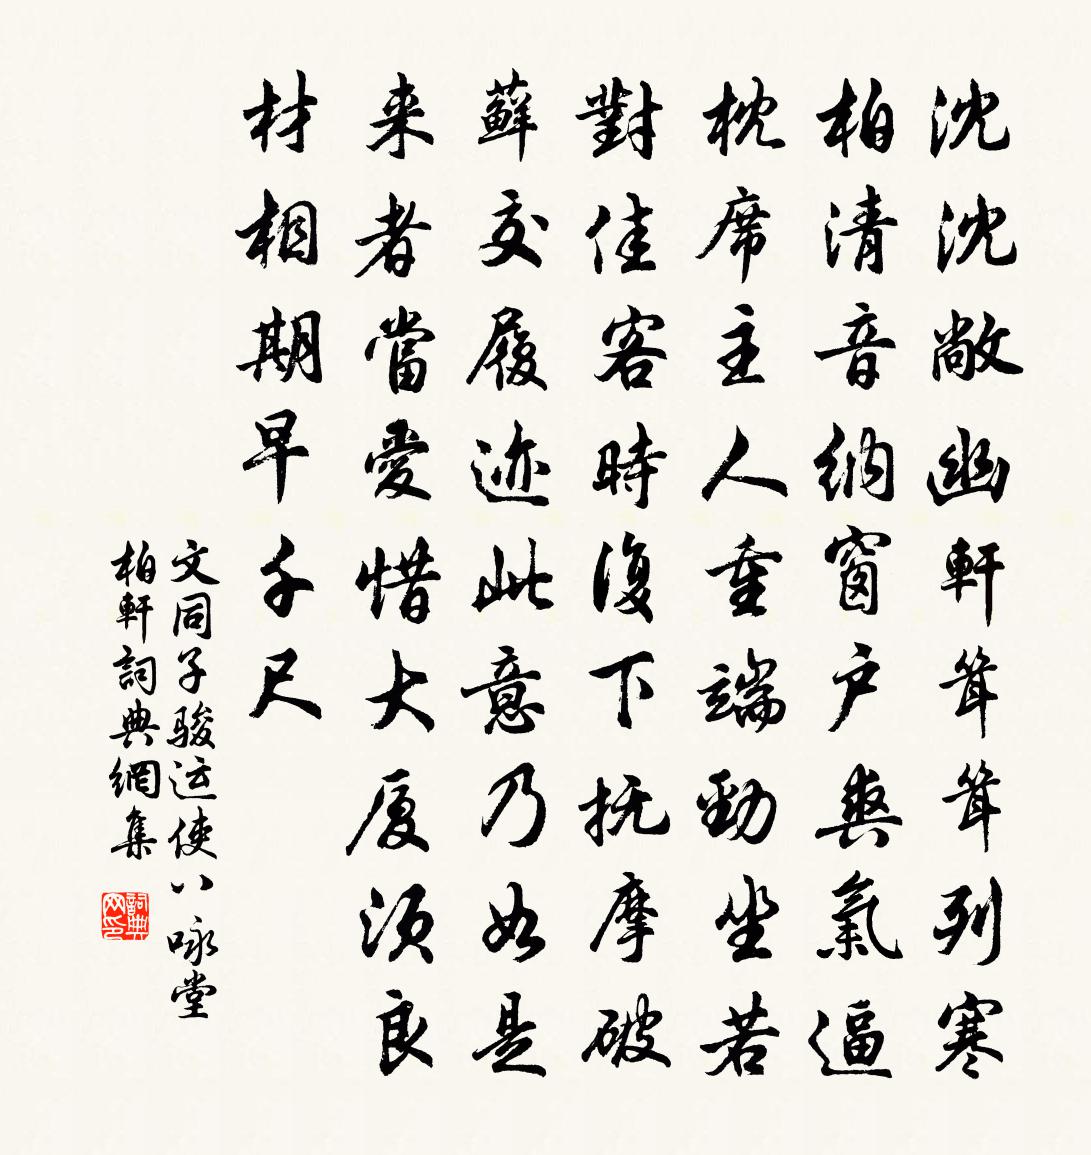 沈沈敞幽軒茸茸列寒
柏清音納窗户爽氣逼
枕席主人重端勁坐若
對佳客時復下抚摩破
蘚交履迹此意乃如是
来者當愛惜大厦須良
材相期早千尺
文同子骏运使八咏堂
柏軒詞典網集
詞典网印